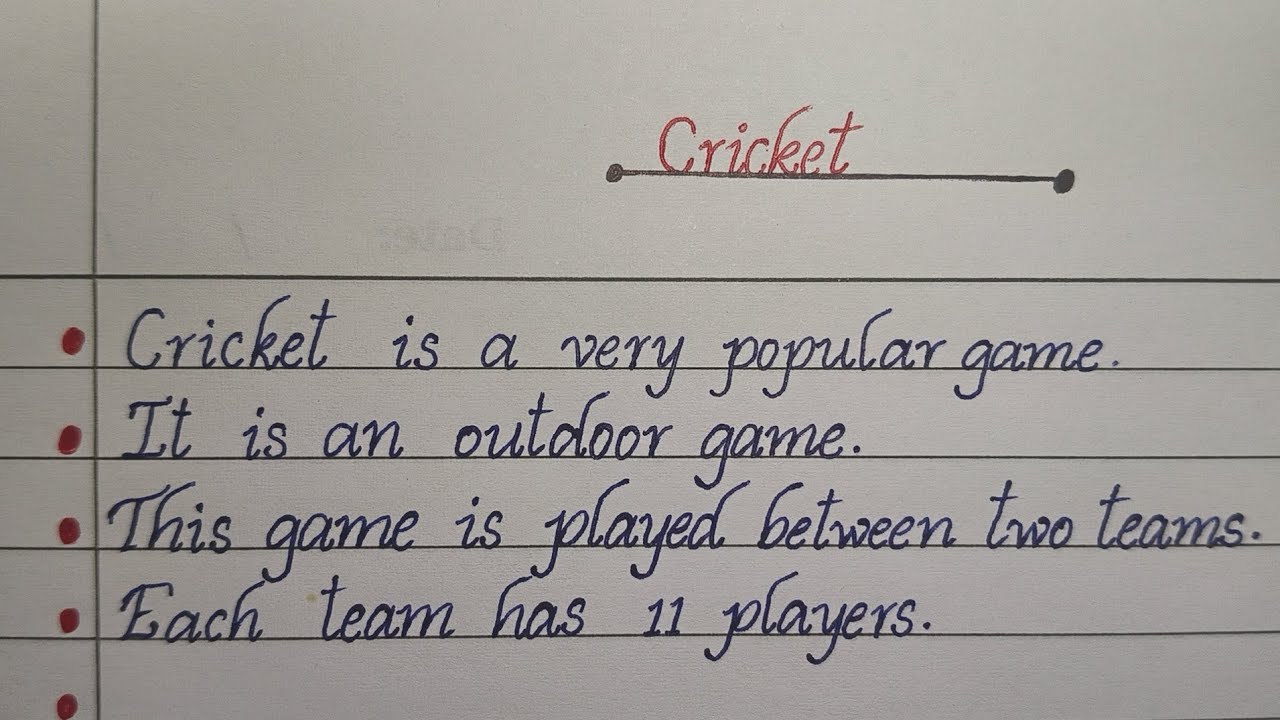 Cricket
Cricket is a very popular game.
It is an outdoor game.
This game is played between two teams.
Each team has 11 players.